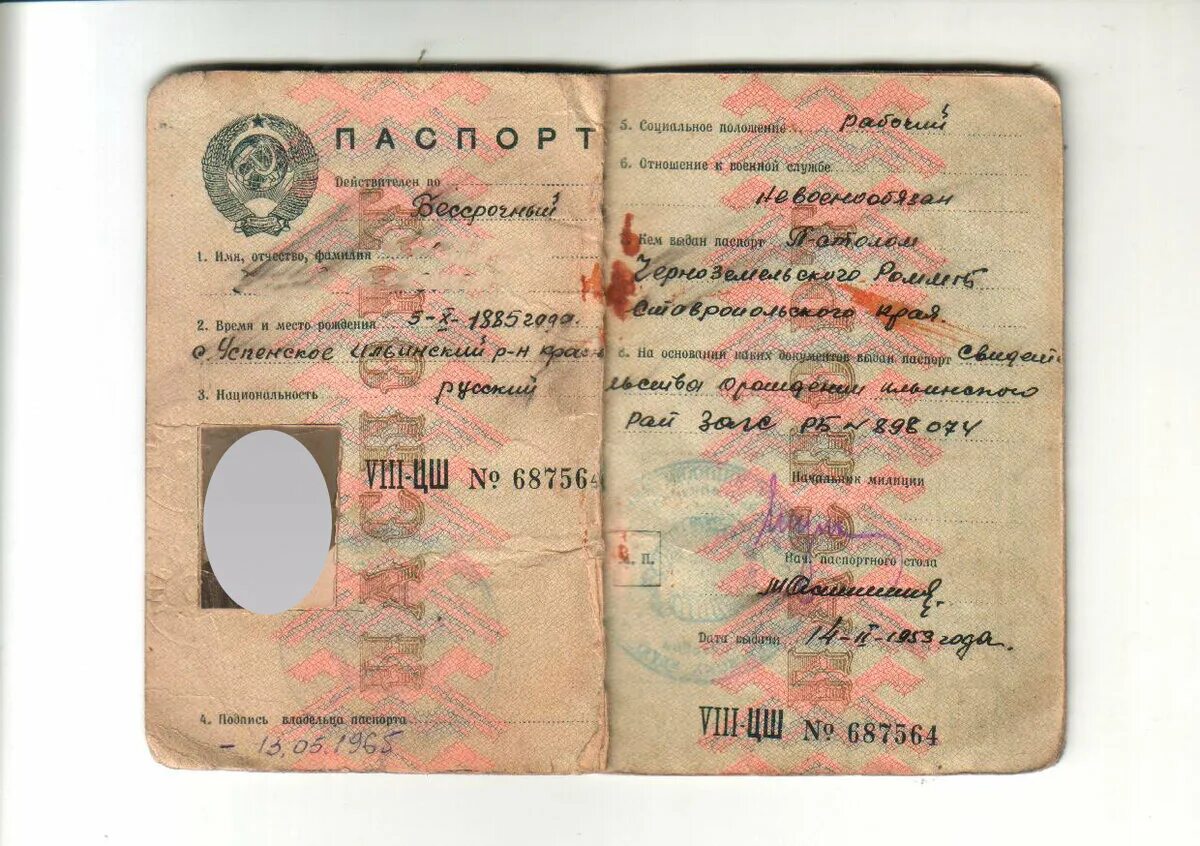 ПАСПОРТ
Действителен по
Бессрочный
1. Имя, отчество, фамилия
2. Время и место рождения 5-X-1885 года.
с. Успенское Ильинский р-н
3. Национальность русский
VIII-ЦШ № 687564
4. Подпись владельца паспорта
- 13.05.1965
5. Социальное положение рабочий
6. Отношение к военной службе
Невоеннообязан
Кем выдан паспорт П-столом
Черноземельского
Ставропольского края.
8. На основании каких документов выдан паспорт Свидетельства
о рождении Ильинского
рай загс РБ № 898074
Начальник милиции
М. П.
Нач. паспортного стола
Дата выдачи 14-II-1953 года.
VIII-ЦШ № 687564